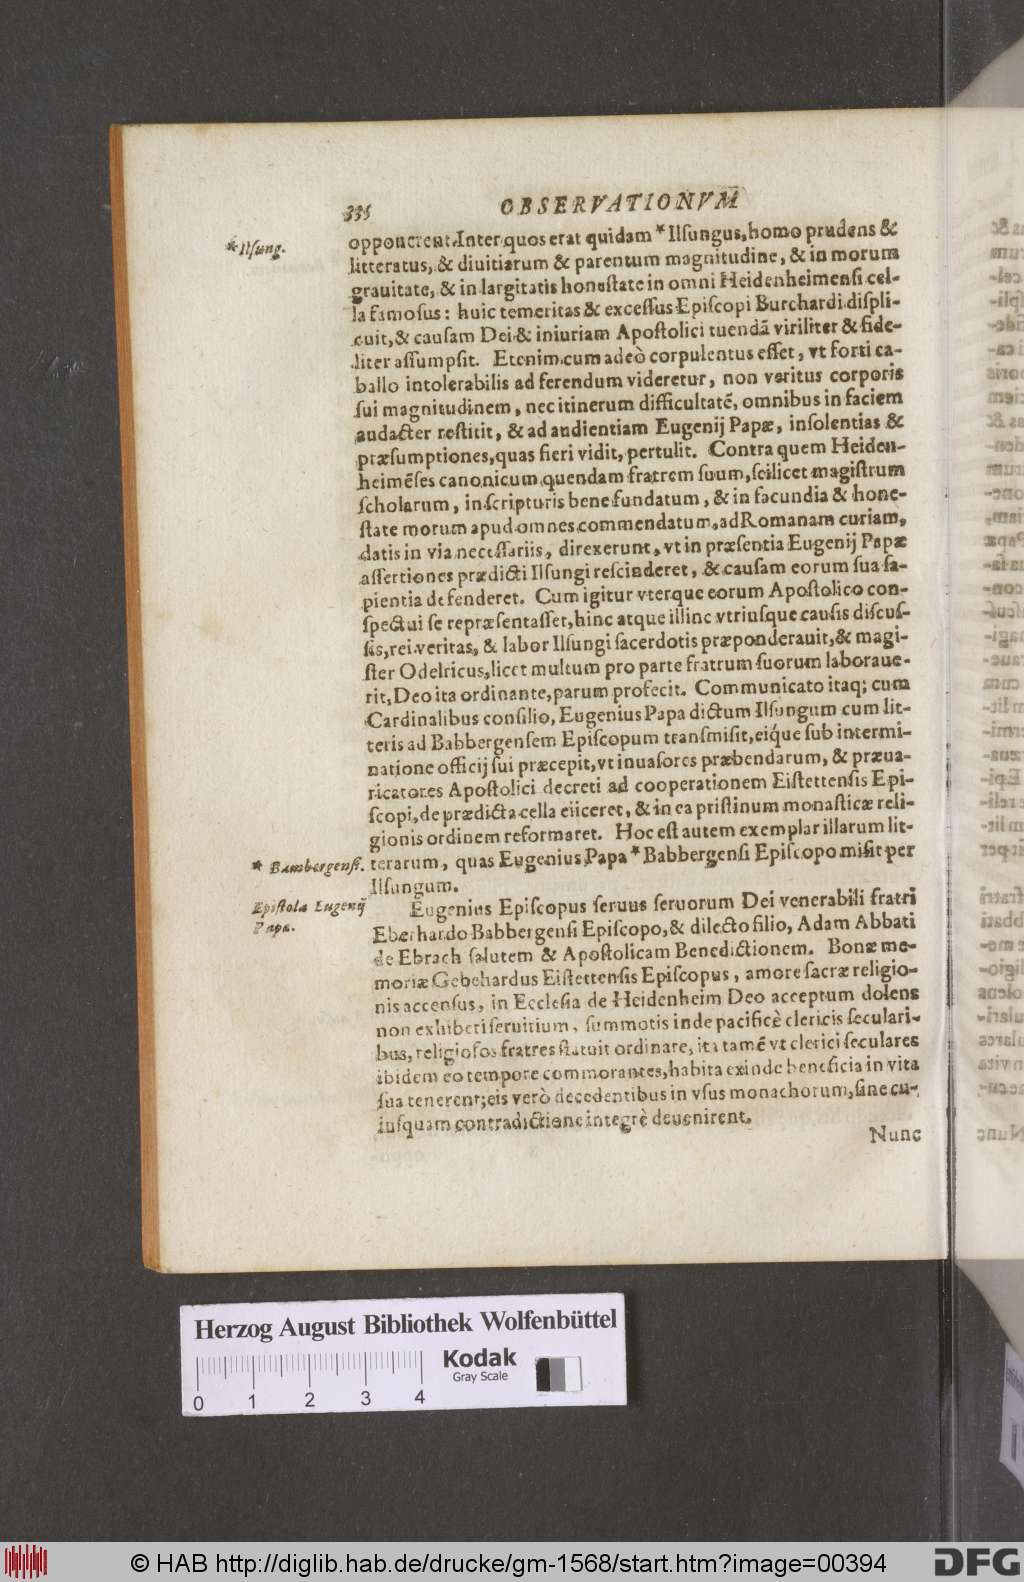 336 OBSERVATIONVM
* Ilſung.
opponerent. Inter quos erat quidam * Ilſungus, homo prudens &
litteratus, & diuitiarum & parentum magnitudine, & in morum
grauitate, & in largitatis honeſtate in omni Heidenheimenſi cel-
la famoſus: huic temeritas & exceſſus Epiſcopi Burchardi diſpli-
cuit, & cauſam Dei & iniuriam Apoſtolici tuendā viriliter & fide-
liter aſſumpſit. Etenim cum adeò corpulentus eſſet, vt forti ca-
ballo intolerabilis ad ferendum videretur, non veritus corporis
ſui magnitudinem, nec itinerum difficultatē, omnibus in faciem
audacter reſtitit, & ad audientiam Eugenij Papæ, inſolentias &
præſumptiones, quas fieri vidit, pertulit. Contra quem Heiden-
heimēſes canonicum quendam fratrem ſuum, ſcilicet magiſtrum
ſcholarum, in ſcripturis bene fundatum, & in facundia & hone-
ſtate morum apud omnes commendatum, ad Romanam curiam,
datis in via neceſſariis, direxerunt, vt in præſentia Eugenij Papæ
aſſertiones prædicti Ilſungi reſcinderet, & cauſam eorum ſua ſa-
pientia defenderet. Cum igitur vterque eorum Apoſtolico con-
ſpectui ſe repræſentaſſet, hinc atque illinc vtriuſque cauſis diſcuſ-
ſis, rei veritas, & labor Ilſungi ſacerdotis præponderauit, & magi-
ſter Odelricus, licet multum pro parte fratrum ſuorum laboraue-
rit, Deo ita ordinante, parum profecit. Communicato itaq; cum
Cardinalibus conſilio, Eugenius Papa dictum Ilſungum cum lit-
teris ad Babbergenſem Epiſcopum transmiſit, eiq́ue ſub intermi-
natione officij ſui præcepit, vt inuaſores præbendarum, & præua-
ricatores Apoſtolici decreti ad cooperationem Eiſtettenſis Epi-
ſcopi, de prædicta cella eiiceret, & in ea priſtinum monaſticæ reli-
gionis ordinem reformaret. Hoc eſt autem exemplar illarum lit-
* Bambergenſi.
terarum, quas Eugenius Papa * Babbergenſi Epiſcopo miſit per
Ilſungum.
Epiſtola Eugenij
Papa.
Eugenius Epiſcopus ſeruus ſeruorum Dei venerabili fratri
Eberhardo Babbergenſi Epiſcopo, & dilecto filio, Adam Abbati
de Ebrach ſalutem & Apoſtolicam Benedictionem. Bonæ me-
moriæ Gebehardus Eiſtettenſis Epiſcopus, amore ſacræ religio-
nis accenſus, in Eccleſia de Heidenheim Deo acceptum dolens
non exhiberi ſeruitium, ſummotis inde pacificè clericis ſeculari-
bus, religioſos fratres ſtatuit ordinare, ita tamē vt clerici ſeculares
ibidem eo tempore commorantes, habita exinde beneficia in vita
ſua tenerent; eis verò decedentibus in vſus monachorum, ſine cu-
iuſquam contradictione integrè deuenirent.
Nunc
Herzog August Bibliothek Wolfenbüttel
Kodak
Gray Scale
0 1 2 3 4
© HAB http://diglib.hab.de/drucke/gm-1568/start.htm?image=00394
DFG